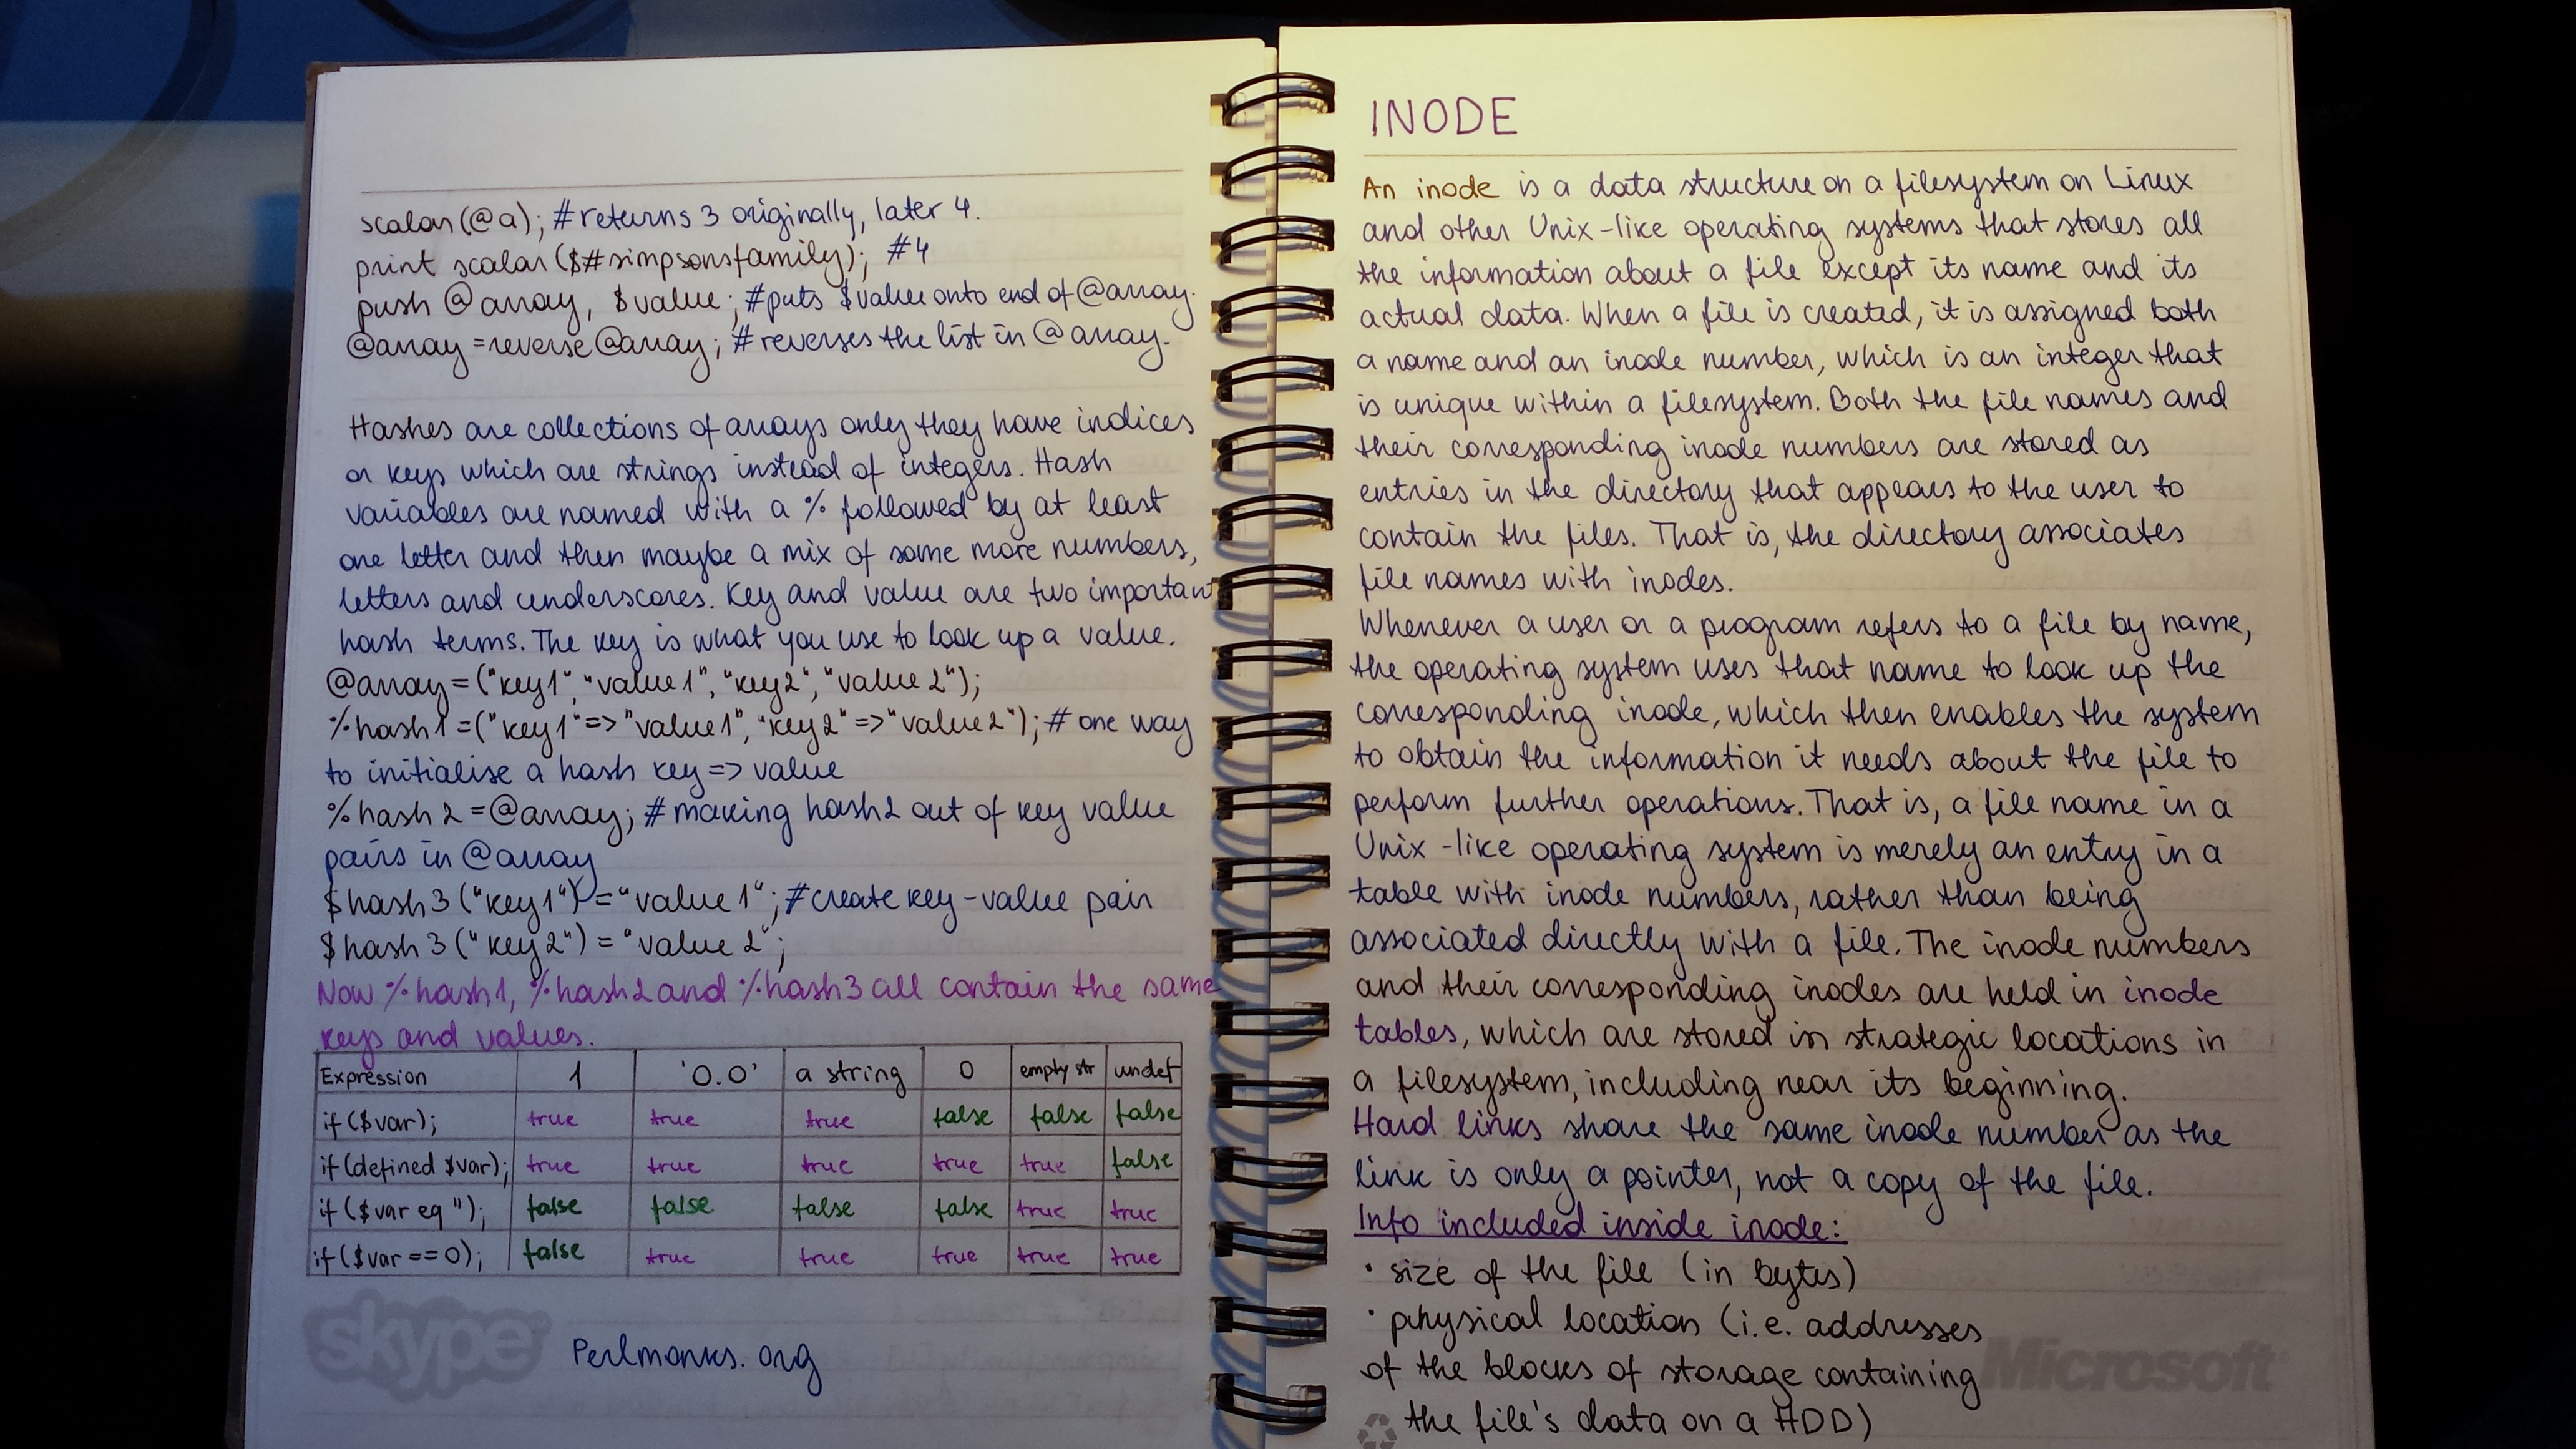 scalar(@a); #returns 3 originally, later 4.
print scalar($#simpsonsfamily); #4
push @array, $value; #puts $value onto end of @array.
@array=reverse@array; #reverses the list in @array.
Hashes are collections of arrays only they have indices
or keys which are strings instead of integers. Hash
variables are named with a % followed by at least
one letter and then maybe a mix of some more numbers,
letters and underscores. Key and value are two important
hash terms. The key is what you use to look up a value.
@array=("key1","value1","key2","value2");
%hash1=("key1"=>"value1","key2"=>"value2"); # one way
to initialise a hash key=>value
%hash2=@array; #making hash2 out of key value
pairs in @array
$hash3("key1")="value1"; #create key-value pair
$hash3("key2")="value2";
Now %hash1, %hash2 and %hash3 all contain the same
keys and values.
Expression 1 '0.0' a string 0 empty str undef
if($var); true true true false false false
if(defined $var); true true true true true false
if($var eq ''); false false false false true true
if($var==0); false true true true true true
skype Perlmonks.org
INODE
An inode is a data structure on a filesystem on Linux
and other Unix-like operating systems that stores all
the information about a file except its name and its
actual data. When a file is created, it is assigned both
a name and an inode number, which is an integer that
is unique within a filesystem. Both the file names and
their corresponding inode numbers are stored as
entries in the directory that appears to the user to
contain the files. That is, the directory associates
file names with inodes.
Whenever a user or a program refers to a file by name,
the operating system uses that name to look up the
corresponding inode, which then enables the system
to obtain the information it needs about the file to
perform further operations. That is, a file name in a
Unix-like operating system is merely an entry in a
table with inode numbers, rather than being
associated directly with a file. The inode numbers
and their corresponding inodes are held in inode
tables, which are stored in strategic locations in
a filesystem, including near its beginning.
Hard links share the same inode number as the
link is only a pointer, not a copy of the file.
Info included inside inode:
• size of the file (in bytes)
• physical location (i.e. addresses
of the blocks of storage containing
the file's data on a HDD)
Microsoft